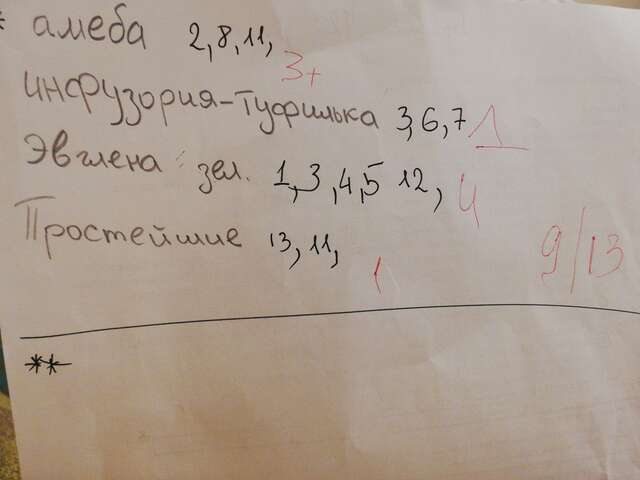 * амеба 2, 8, 11, 3+
инфузория-туфилька 3, 6, 7 1
Эвглена зел. 1, 3, 4, 5 12, 4
Простейшие 13, 11, 1
9/13
**